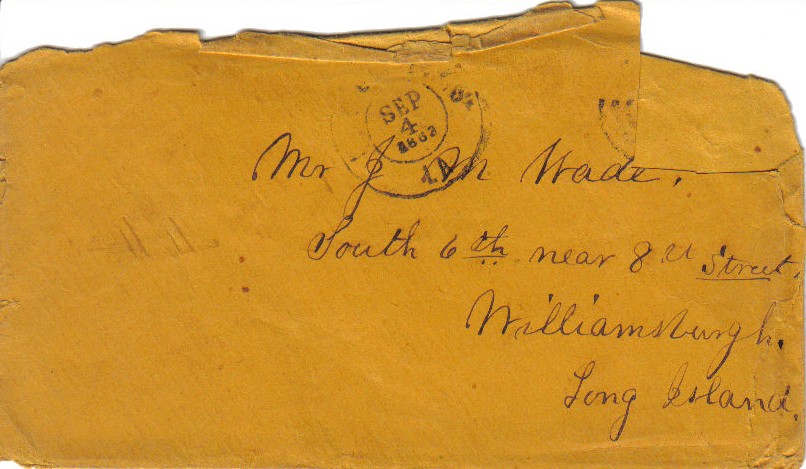 SEP
4
1863
Mr J M Wade.
South 6th near 8th Street.
Williamsburgh.
Long Island.